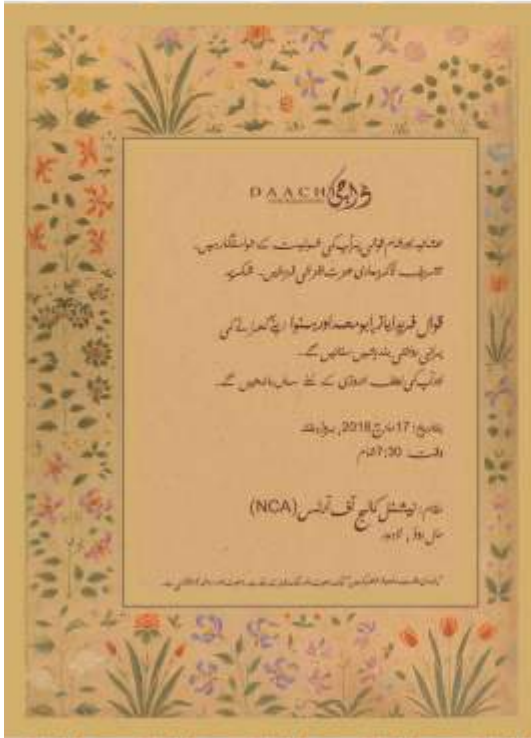 DAACHI ڈاچی
FOUNDATION
عشائیہ اور شام قوالی پر آپ کی شمولیت کے خواستگار ہیں۔
تشریف لا کر ہماری عزت افزائی فرمائیں۔ شکریہ
قوال فرید ایاز، ابو محمد اور ہمنوا اپنے گھرانے کی
پرانی روائتی بندشیں سنائیں گے۔
اور آپ کی لطف اندوزی کے لئے سماں باندھیں گے۔
بتاریخ: 17 مارچ 2018, بروز ہفتہ
وقت: 7:30 شام
مقام: نیشنل کالج آف آرٹس (NCA)
مال روڈ، لاہور